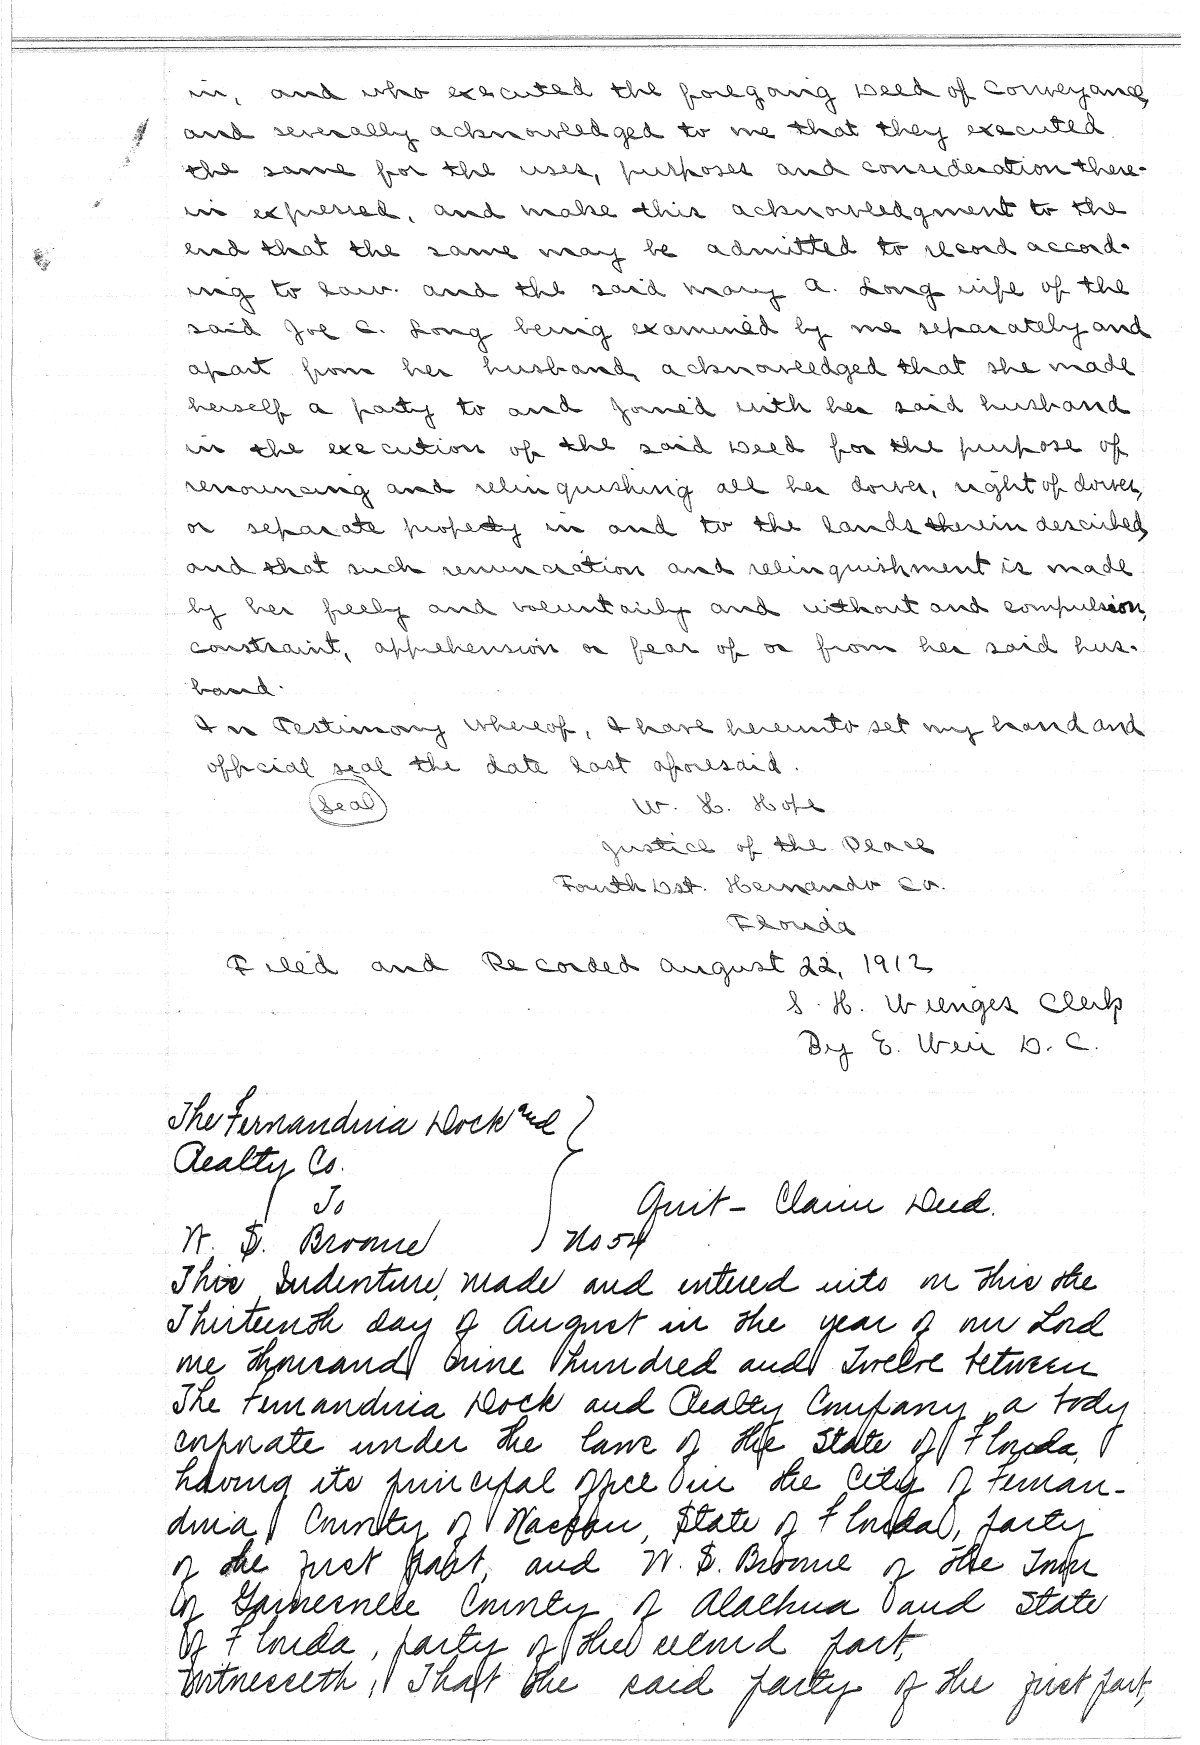 in, and who executed the foregoing Deed of Conveyance,
and severally acknowledged to me that they executed
the same for the uses, purposes and consideration there-
in expressed, and make this acknowledgment to the
end that the same may be admitted to record accord-
ing to law. and the said Mary A. Long wife of the
said Joe C. Long being examined by me separately and
apart from her husband, acknowledged that she made
herself a party to and joined with her said husband
in the execution of the said Deed for the purpose of
renouncing and relinquishing all her dower, right of dower,
or separate property in and to the lands therein described,
and that such renunciation and relinquishment is made
by her freely and voluntairly and without and compulsion,
constraint, apprehension or fear of or from her said hus-
band.
In Testimony Whereof, I have hereunto set my hand and
official seal the date last aforesaid.
Seal W. H. Hope
Justice of the Peace
Fourth Dst. Hernando Co.
Florida
Filed and Recorded August 22, 1912
S. H. Wienges Clerk
By E. Weir D. C.
The Fernandina Dock and
Realty Co.
To Quit-Claim Deed.
W. S. Broome No 54
This Indenture, made and entered into on this the
Thirteenth day of August in the year of our Lord
one thousand nine hundred and Twelve between
The Fernandina Dock and Realty Company, a body
corporate under the laws of the State of Florida,
having its principal office in the City of Fernan-
dina, County of Nassau, State of Florida, party
of the first part, and W. S. Broome of the Town
of Gainesville County of Alachua and State
of Florida, party of the second part,
Witnesseth, That the said party of the first part,